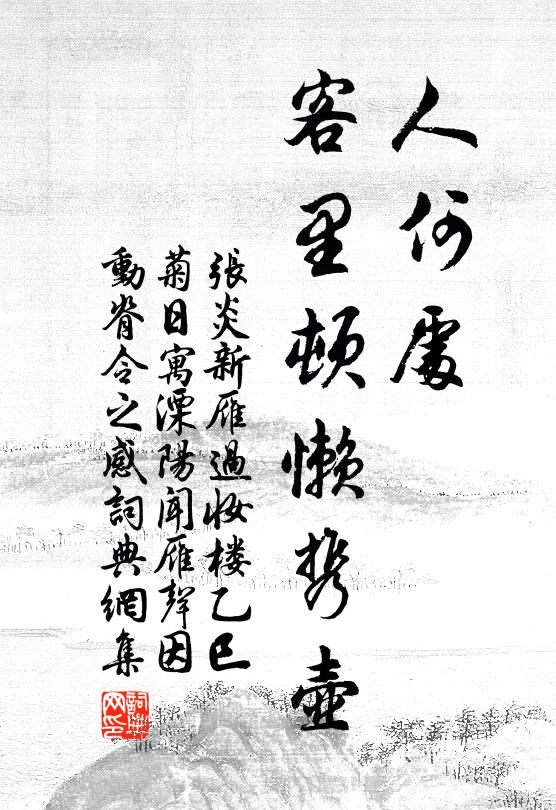 人何處
客里頓懶携壺
張炎新雁過妆楼乙巳
菊日寓溧陽闻雁聲因
動脊令之感詞典網集